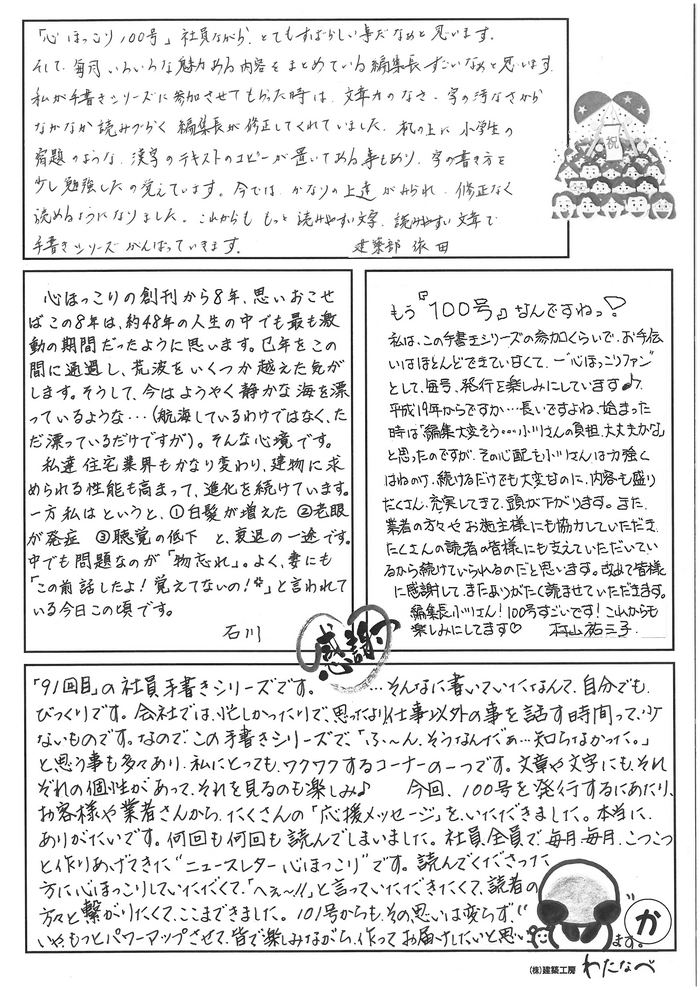 「心ほっこり100号」社員ながら、とてもすばらしい事だなぁと思います。
そして、毎月いろいろな魅力ある内容をまとめている編集長すごいなぁと思います。
私が手書きシリーズに参加させてもらった時は、文章力のなさ、字の汚なさから
なかなか読みづらく編集長が修正してくれていました。机の上に小学生の
宿題のような、漢字のテキストのコピーが置いてある事もあり、字の書き方を
少し勉強したの覚えています。今では、かなりの上達がみられ、修正なく
読めるようになりました。これからも もっと読みやすい文字、読みやすい文章で
手書きシリーズがんばっていきます。
建築部 依田
祝
心ほっこりの創刊から8年、思いおこせ
ばこの8年は、約48年の人生の中でも最も激
動の期間だったように思います。巳年をこの
間に通過し、荒波をいくつか越えた気が
します。そうして、今はようやく静かな海を漂
っているような・・・(航海しているわけではなく、た
だ漂っているだけですが)。そんな心境です。
私達住宅業界もかなり変わり、建物に求
められる性能も高まって、進化を続けています。
一方私はというと、①白髪が増えた ②老眼
が発症 ③聴覚の低下 と、衰退の一途です。
中でも問題なのが「物忘れ」。よく、妻にも
「この前話したよ!覚えてないの!」と言われて
いる今日この頃です。
石川
もう『100号』なんですねっ!
私は、この手書きシリーズの参加くらいで、お手伝
いはほとんどできていなくて、一"心ほっこりファン"
として、毎号、発行を楽しみにしています♪
平成19年からですか…長いですよね、始まった
時は「編集大変そう…小川さんの負担、大丈夫かな」
と思ったのですが、その心配も小川さんは力強く
はねのけ、続けるだけでも大変なのに、内容も盛り
だくさん、充実してきて、頭が下がります。また、
業者の方々やお施主様にも協力していただき、
たくさんの読者の皆様にも支えていただいてい
るから続けていられるのだと思います。改めて皆様
に感謝して、またありがたく読ませていただきます。
編集長小川さん!100号すごいです!これからも
楽しみにしてます♡ 村山祐三子
感謝
「91回目」の社員手書きシリーズです。 …そんなに書いていただなんて、自分でも、
びっくりです。会社では、忙しかったりで、思ったより仕事以外の事を話す時間って、少
ないものです。なので、この手書きシリーズで、「ふ〜ん、そうなんだぁ…知らなかった。」
と思う事も多々あり、私にとっても、ワクワクするコーナーの一つです。文章や文字にも、それ
ぞれの個性があって、それを見るのも楽しみ♪ 今回、100号を発行するにあたり、
お客様や業者さんから、たくさんの「応援メッセージ」を、いただきました。本当に、
ありがたいです。何回も何回も読んでしまいました。社員全員で、毎月、毎月、こつこつ
と作りあげてきた"ニュースレター心ほっこり"です。読んでくださった
方に心ほっこりしていただたくて、「へぇ〜!!」と言っていただきたくて、読者の
方々と繋がりたくて、ここまできました。101号からも、その思いは変らず、
いや、もっとパワーアップさせて、皆で楽しみながら、作ってお届けしたいと思い
ます。
か
(株)建築工房 わたなべ